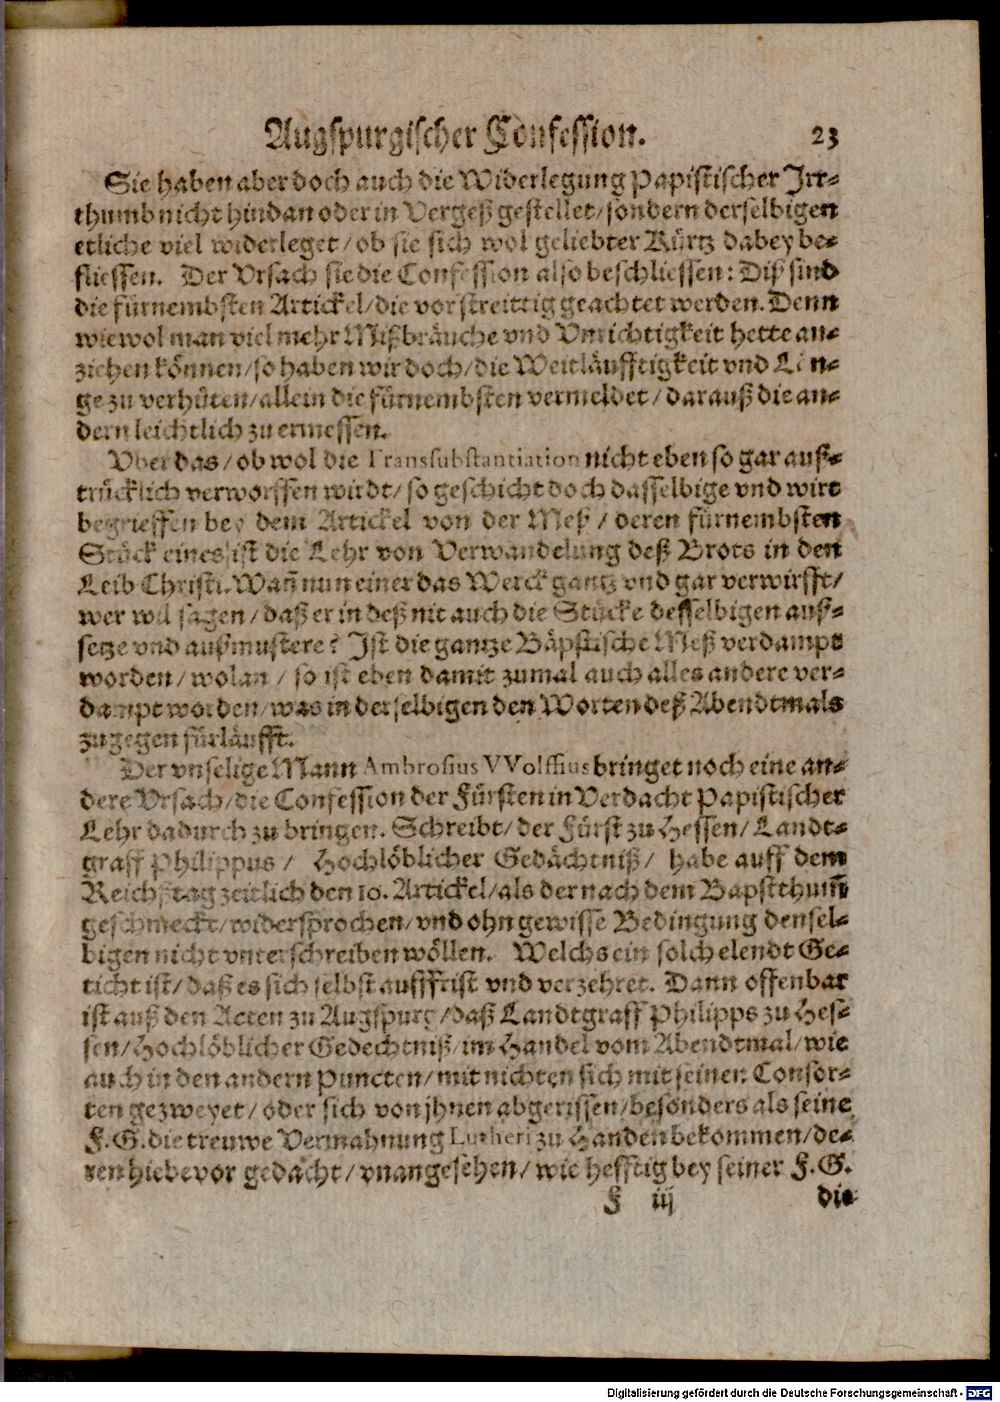 Augspurgischer Confession. 23
Sie haben aber doch auch die Widerlegung Papistischer Irr-
thumb nicht hindan oder in Vergeß gestellet/ sondern derselbigen
etliche viel widerleget/ ob sie sich wol geliebter Kürtz dabey be-
fliessen. Der Vrsach sie die Confession also beschliessen: Diß sind
die fürnembsten Artickel/ die vor streittig geachtet werden. Denn
wiewol man viel mehr Mißbräuche vnd Vnrichtigkeit hette an-
ziehen können/ so haben wir doch/ die Weitläufftigkeit vnd Len-
ge zu verhüten/ allein die fürnembsten vermeldet/ darauß die an-
dern leichtlich zu ermessen.
Vber das/ ob wol die Transsubstantiation nicht eben so gar auß-
trücklich verworffen wirdt/ so geschicht doch dasselbige vnd wirt
begrieffen bey dem Artickel von der Meß/ deren fürnembsten
Stück eines ist die Lehr von Verwandelung deß Brots in den
Leib Christi. Wañ nun einer das Werck gantz vnd gar verwirfft/
wer wil sagen/ daß er in deß nit auch die Stücke desselbigen auß-
setze vnd außmustere? Ist die gantze Bäpstische Meß verdampt
worden/ wolan/ so ist eben damit zumal auch alles andere ver-
dampt worden/ was in derselbigen den Worten deß Abendtmals
zugegen fürläufft.
Der vnselige Mann Ambrosius VVolffius bringet noch eine an-
dere Vrsach/ die Confession der Fürsten in Verdacht Papistischer
Lehr dadurch zu bringen. Schreibt/ der Fürst zu Hessen/ Landt-
graff Philippus/ Hochlöblicher Gedächtniß/ habe auff dem
Reichstag zeitlich den 10. Artickel/ als der nach dem Bapstthum̃
geschmeckt/ widersprochen/ vnd ohn gewisse Bedingung densel-
bigen nicht vnterschreiben wöllen. Welchs ein solch elendt Ge-
ticht ist/ daß es sich selbst auffrist vnd verzehret. Dann offenbar
ist auß den Acten zu Augspurg/ daß Landtgraff Philipps zu Hes-
sen/ Hochlöblicher Gedechtniß/ im Handel vom Abendtmal/ wie
auch in den andern Puncten/ mit nichten sich mit seinen Consor-
ten gezweyet/ oder sich von jhnen abgerissen/ besonders als seine
F. G. die treuwe Vermahnung Lutheri zu Handen bekommen/ de-
ren hiebevor gedacht/ vnangesehen/ wie hefftig bey seiner F. G.
F iij die
Digitalisierung gefördert durch die Deutsche Forschungsgemeinschaft - DFG